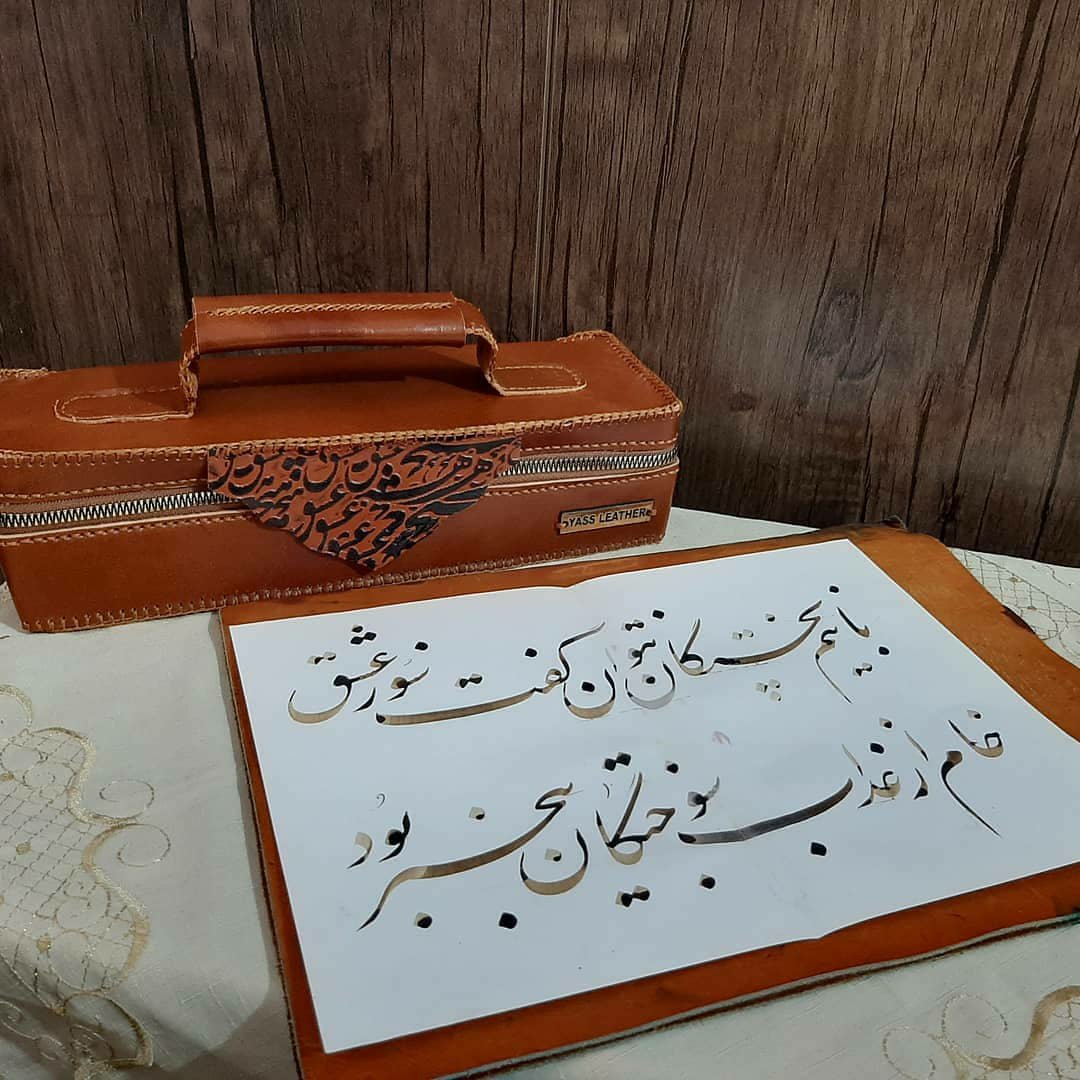 YASS LEATHER
با نیم پختگان نتوان گفت سوز عشق
خام از عذاب سوختگان بیخبر بود